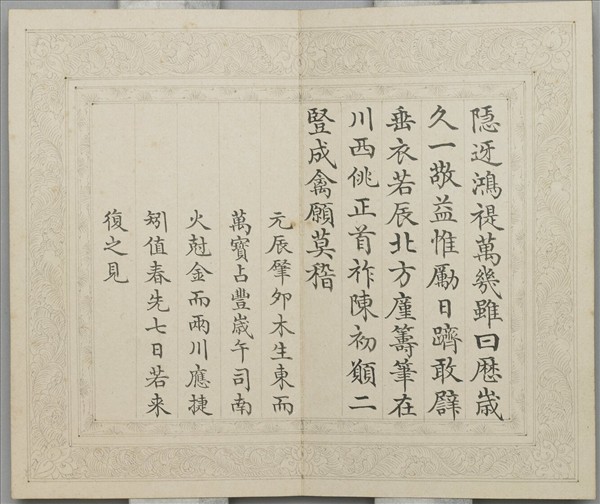 隱迓鴻禔萬幾雖曰歴歲
久一敬益惟勵日躋敢譬
垂衣若辰北方廑籌筆在
川西佻正首祚陳初願二
豎成禽願莫稽
元辰肇卯木生東而
萬寶占豐歲午司南
火尅金而兩川應捷
矧值春先七日若来
復之見